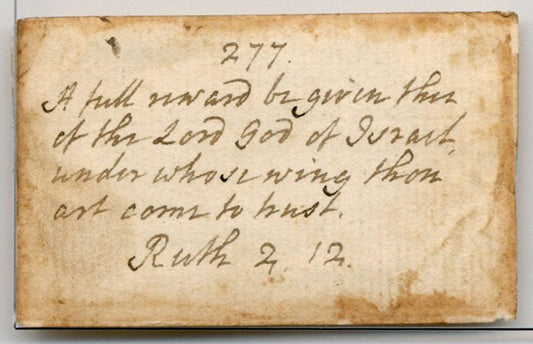 277.
A full reward be given thee
of the Lord God of Israel,
under whose wing thou
art come to trust.
Ruth 2. 12.